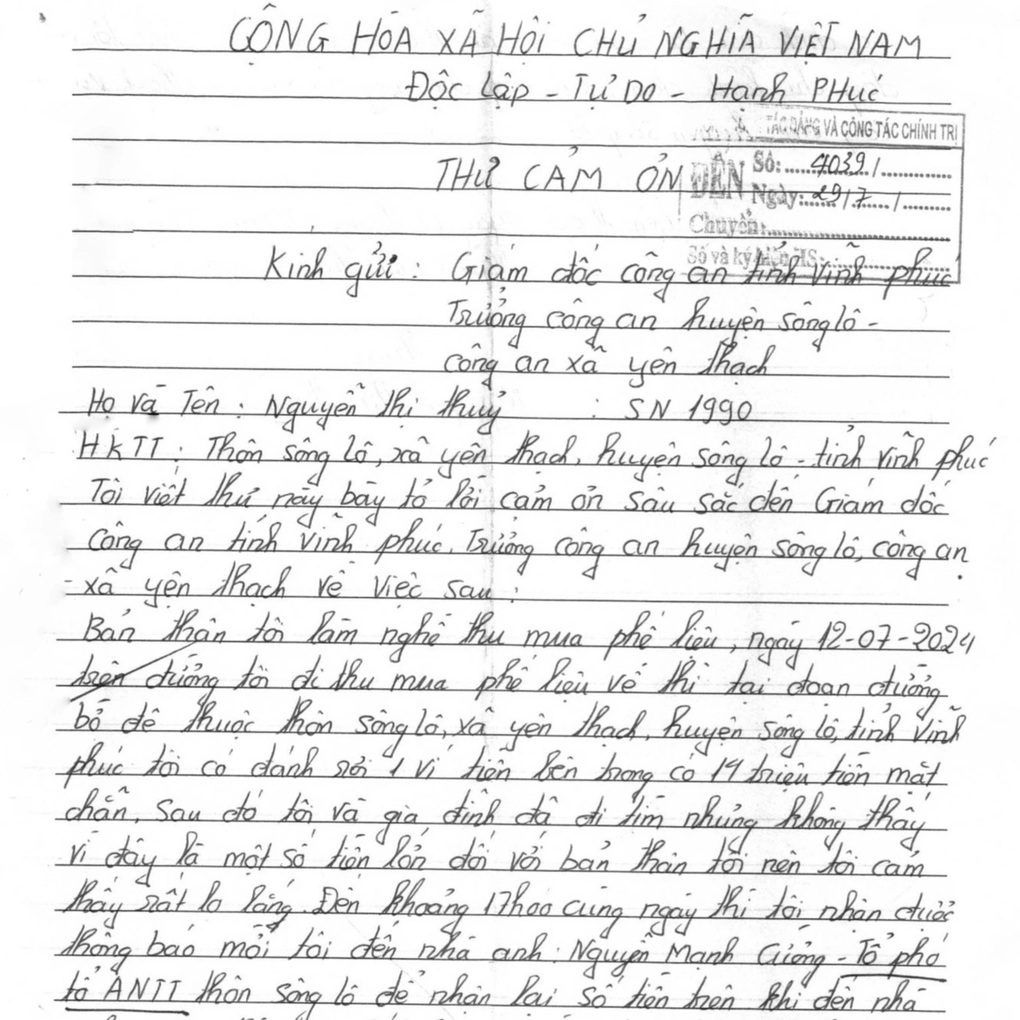 CỘNG HÒA XÃ HỘI CHỦ NGHĨA VIỆT NAM
Độc lập - Tự Do - Hạnh PHúc
TÁC ĐẢNG VÀ CÔNG TÁC CHÍNH TRỊ
THƯ CẢM ƠN
ĐẾN
Số: 4039/
Ngày: 29/7/
Chuyển:
Số và ký hiệu HS:
Kính gửi : Giám đốc công an tỉnh Vĩnh phúc
Trưởng công an huyện sông lô -
công an xã yên thạch
Họ và Tên : Nguyễn thị thuỷ : SN 1990
HKTT : Thôn sông lô, xã yên thạch, huyện sông lô - tỉnh Vĩnh phúc
Tôi viết thư này bày tỏ lời cảm ơn sâu sắc đến Giám đốc
công an tỉnh Vĩnh phúc. Trưởng công an huyện sông lô, công an
- xã yên thạch về việc sau :
Bản thân tôi làm nghề thu mua phế liệu, ngày 12-07-2024
trên đường tôi đi thu mua phế liệu về thì tại đoạn đường
bờ đê thuộc thôn sông lô, xã yên thạch, huyện sông lô, tỉnh Vĩnh
phúc tôi có đánh rơi 1 ví tiền bên trong có 14 triệu tiền mặt
chẵn. Sau đó tôi và gia đình đã đi tìm nhưng không thấy
vì đây là một số tiền lớn đối với bản thân tôi nên tôi cảm
thấy rất lo lắng. Đến khoảng 17h00 cùng ngày thì tôi nhận được
thông báo mời tôi đến nhà anh : Nguyễn Mạnh Cường - Tổ phó
tổ ANTT thôn sông lô để nhận lại số tiền trên khi đến nhà